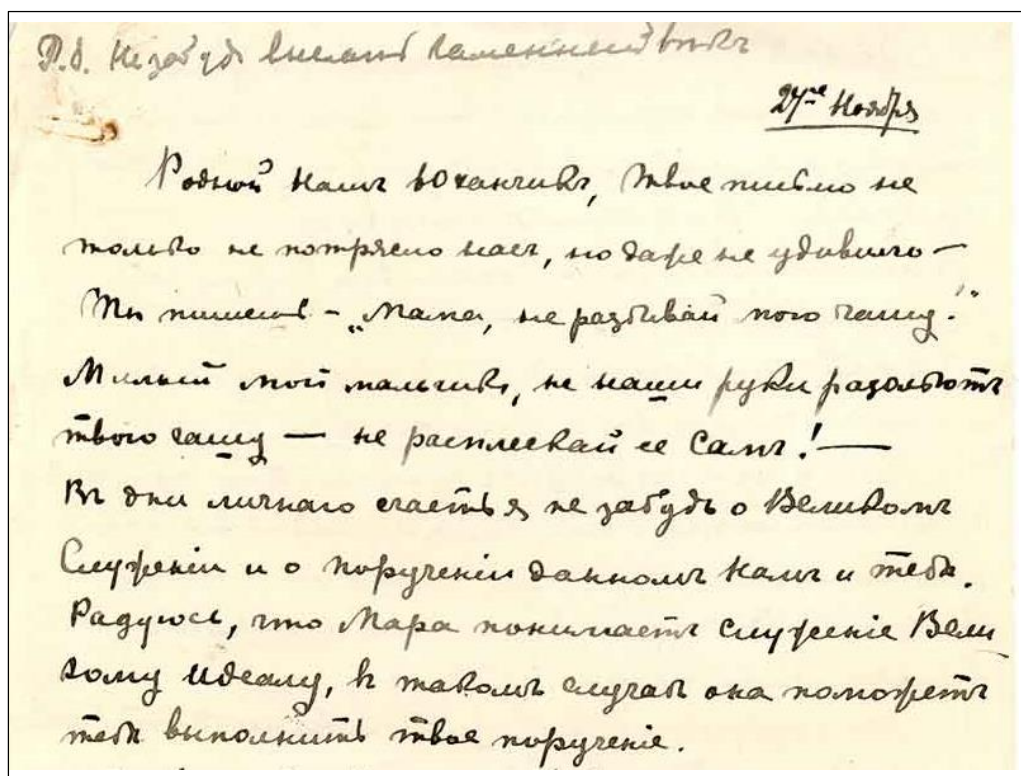 P.S. Не забудь выслать Каменный векъ
24ое Ноября
Родной нашъ Юханчикъ, твое письмо не
только не потрясло насъ, но даже не удивило —
Ты пишешь – „Мама, не разбивай мою чашу!"
Милый мой мальчикъ, не наши руки разобьютъ
твою чашу — не расплескай ее Самъ! —
Въ дни личнаго счастья не забудь о Великомъ
Служеніи и о порученіи данномъ намъ и тебѣ.
Радуюсь, что Мара понимаетъ служеніе Вели
кому идеалу, въ такомъ случаѣ она поможетъ
тебѣ выполнить твое порученіе.